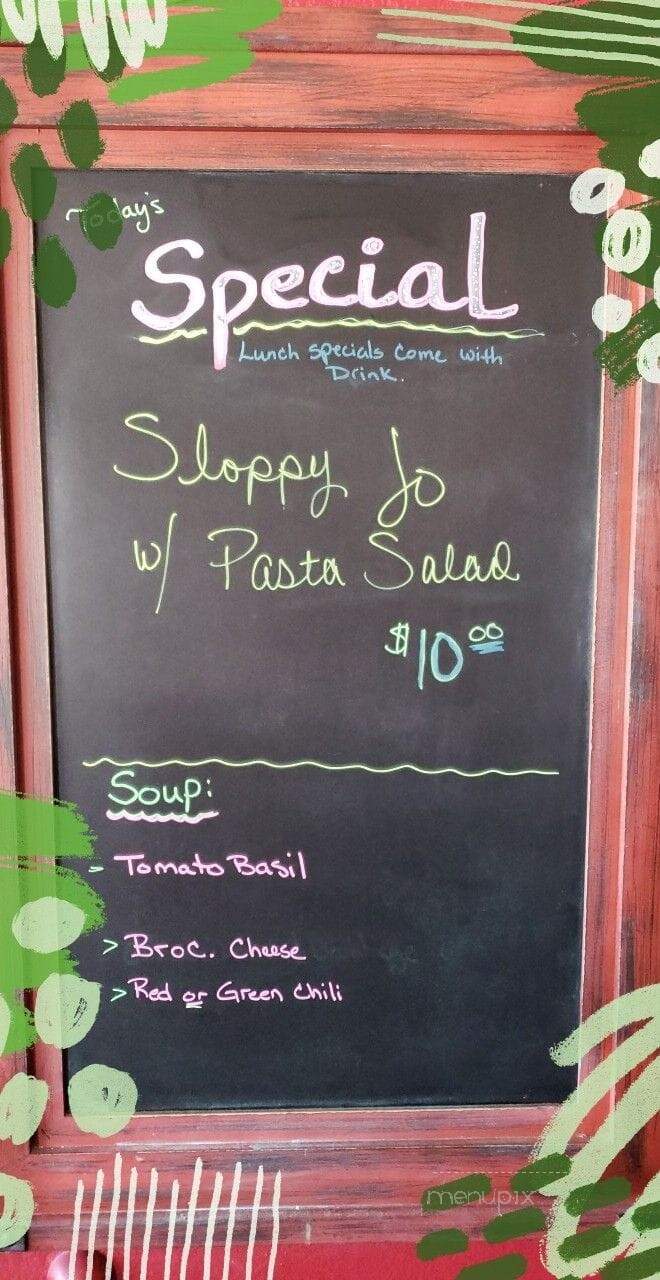 ~Today's
Special
Lunch specials come with
Drink.
Sloppy Jo
w/ Pasta Salad
$10.00
Soup:
> Tomato Basil
> Broc. Cheese
> Red or Green Chili
menupix